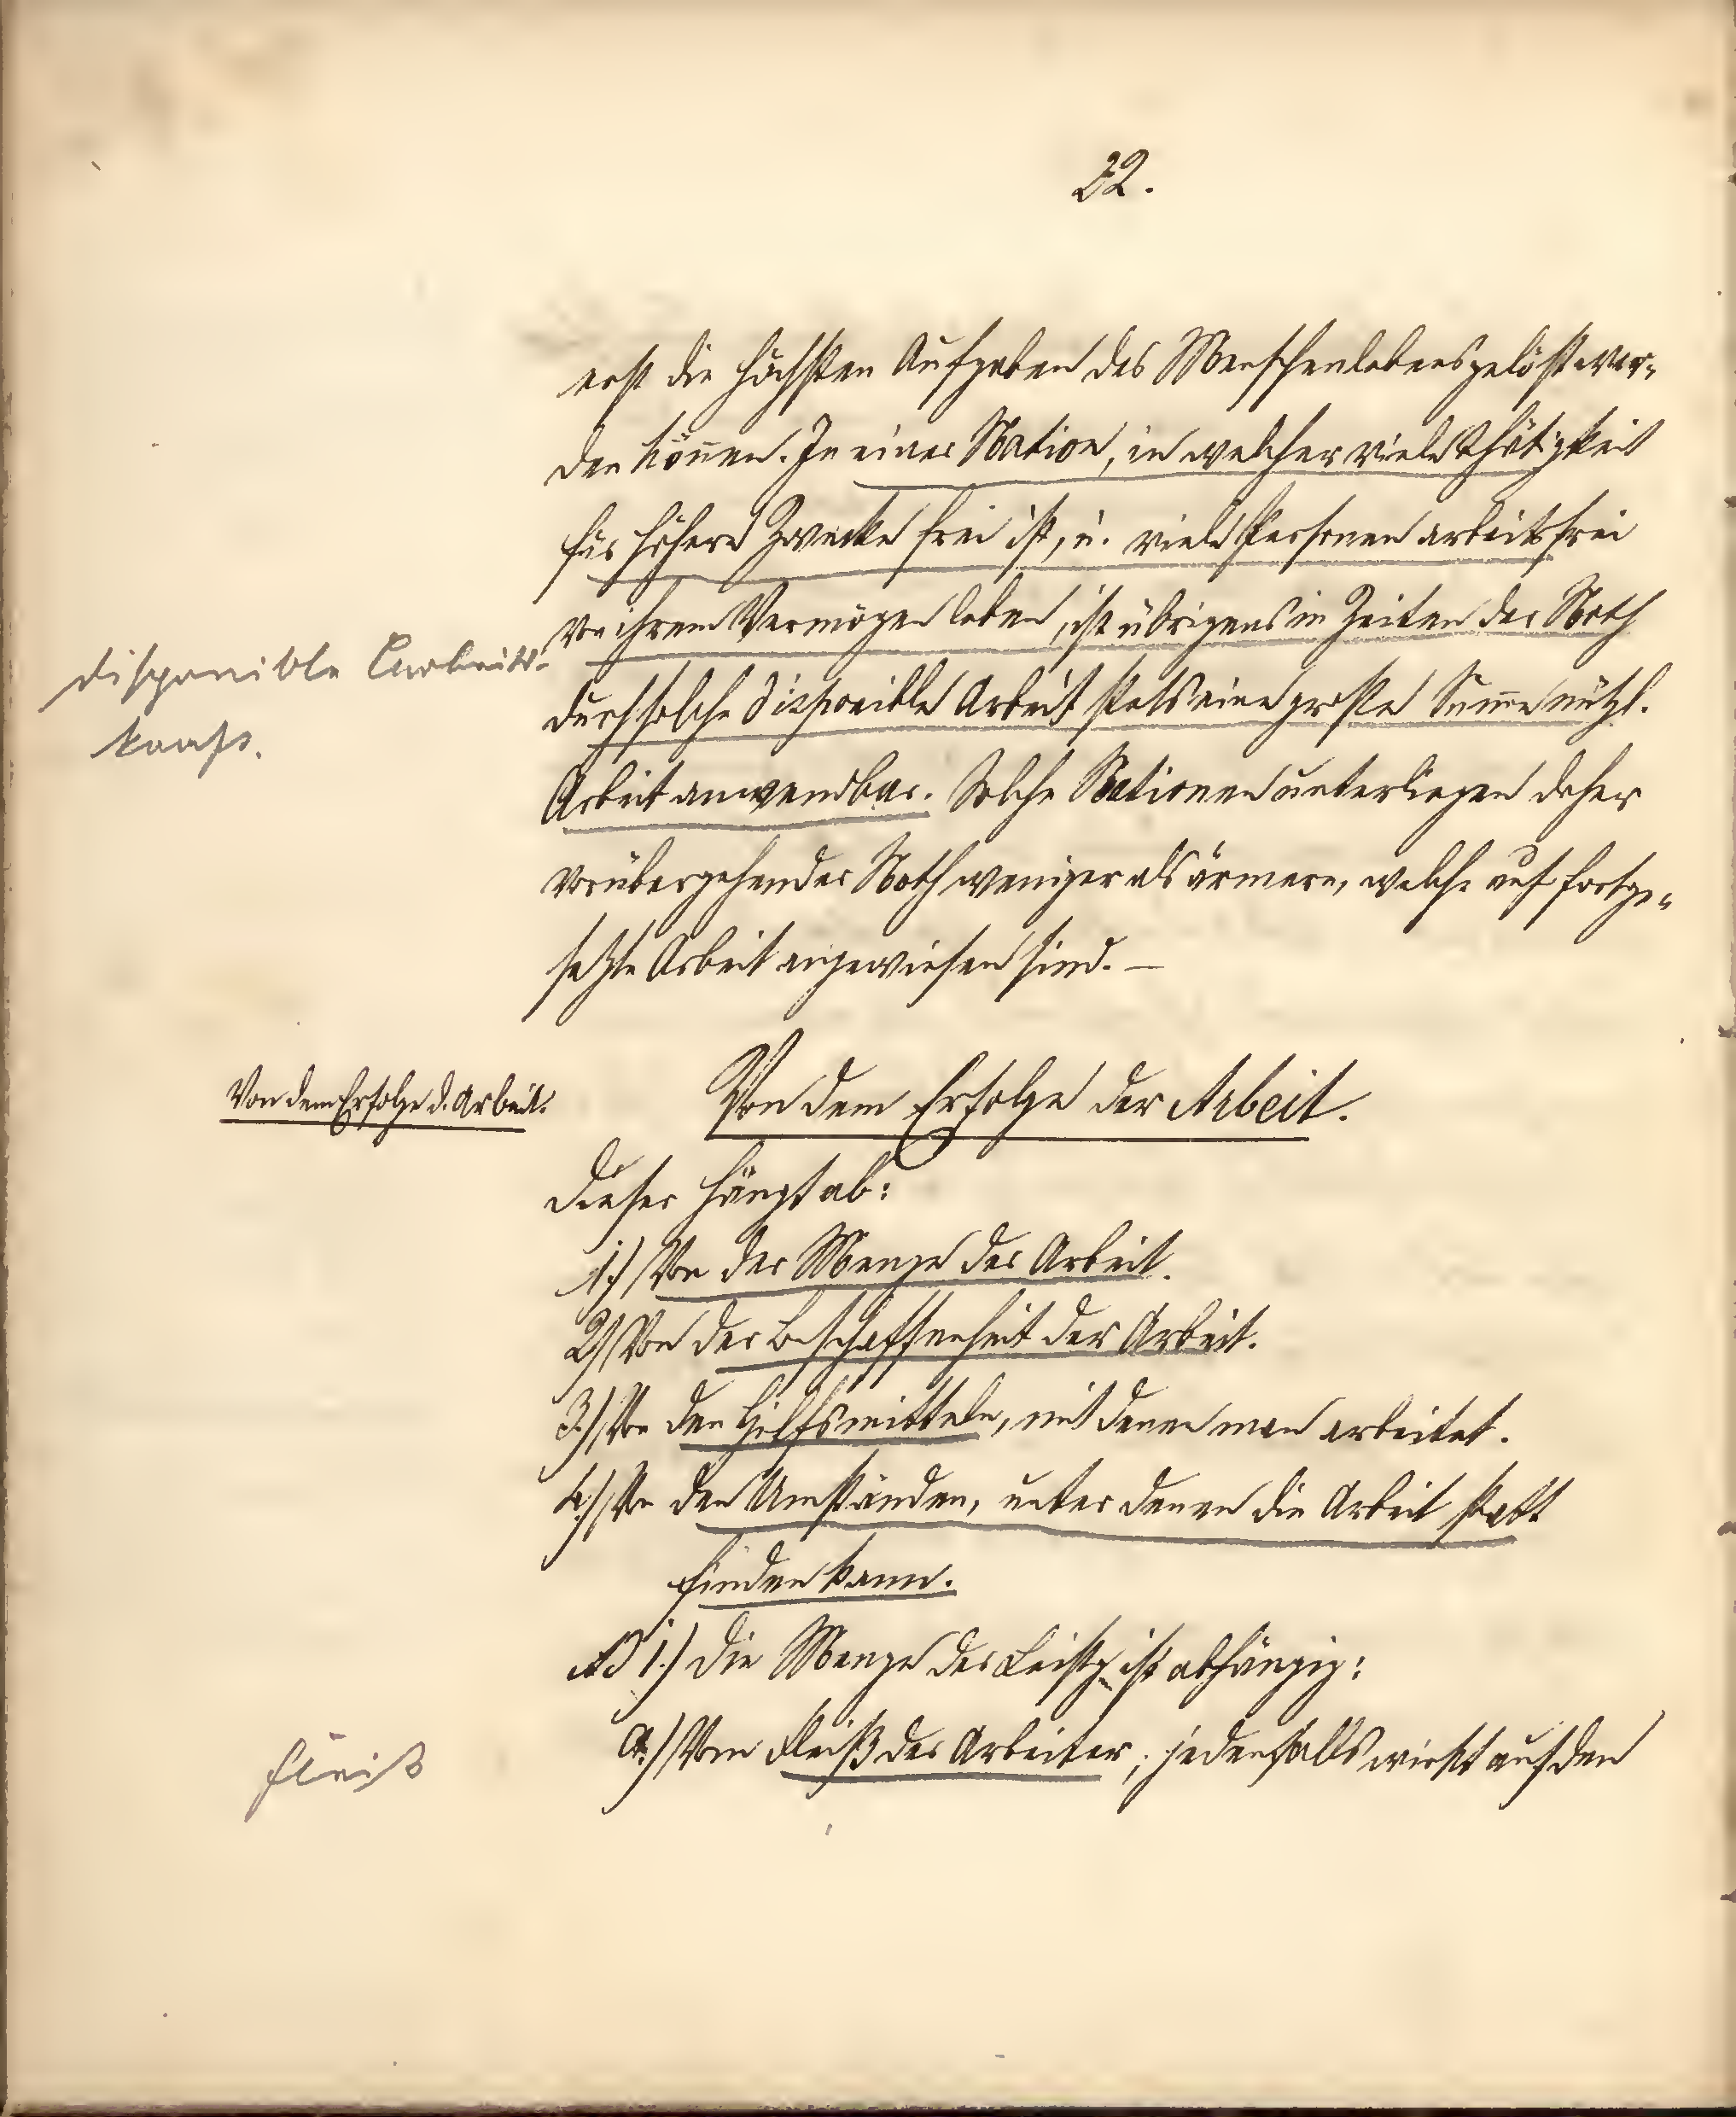 22.
erst die höchsten Aufgaben des Menschenlebens gelöst wer-
den können. In einer Nation, in welcher viele Thätigkeit
für höhere Zwecke frei ist, u. viele Personen arbeitsfrei
von ihrem Vermögen leben, ist übrigens in Zeiten der Noth
disponible Arbeits-
kraft.
durch solche disponible Arbeit stets eine große Summe nützl.
Arbeit anwendbar. Solche Nationen unterliegen daher
vorübergehender Noth weniger als ärmere, welche auf fortge-
setzte Arbeit angewiesen sind. —
Von dem Erfolge d. Arbeit.
Von dem Erfolge der Arbeit.
Dieser hängt ab:
1.) Von der Menge der Arbeit.
2) Von der Beschaffenheit der Arbeit.
3.) Von den Hilfsmitteln, mit denen man arbeitet.
4.) Von den Umständen, unter denen die Arbeit statt
finden kann.
Ad 1.) Die Menge der Leistg ist abhängig:
Fleiß
a.) Vom Fleiß der Arbeiter; jedenfalls wirkt auf den